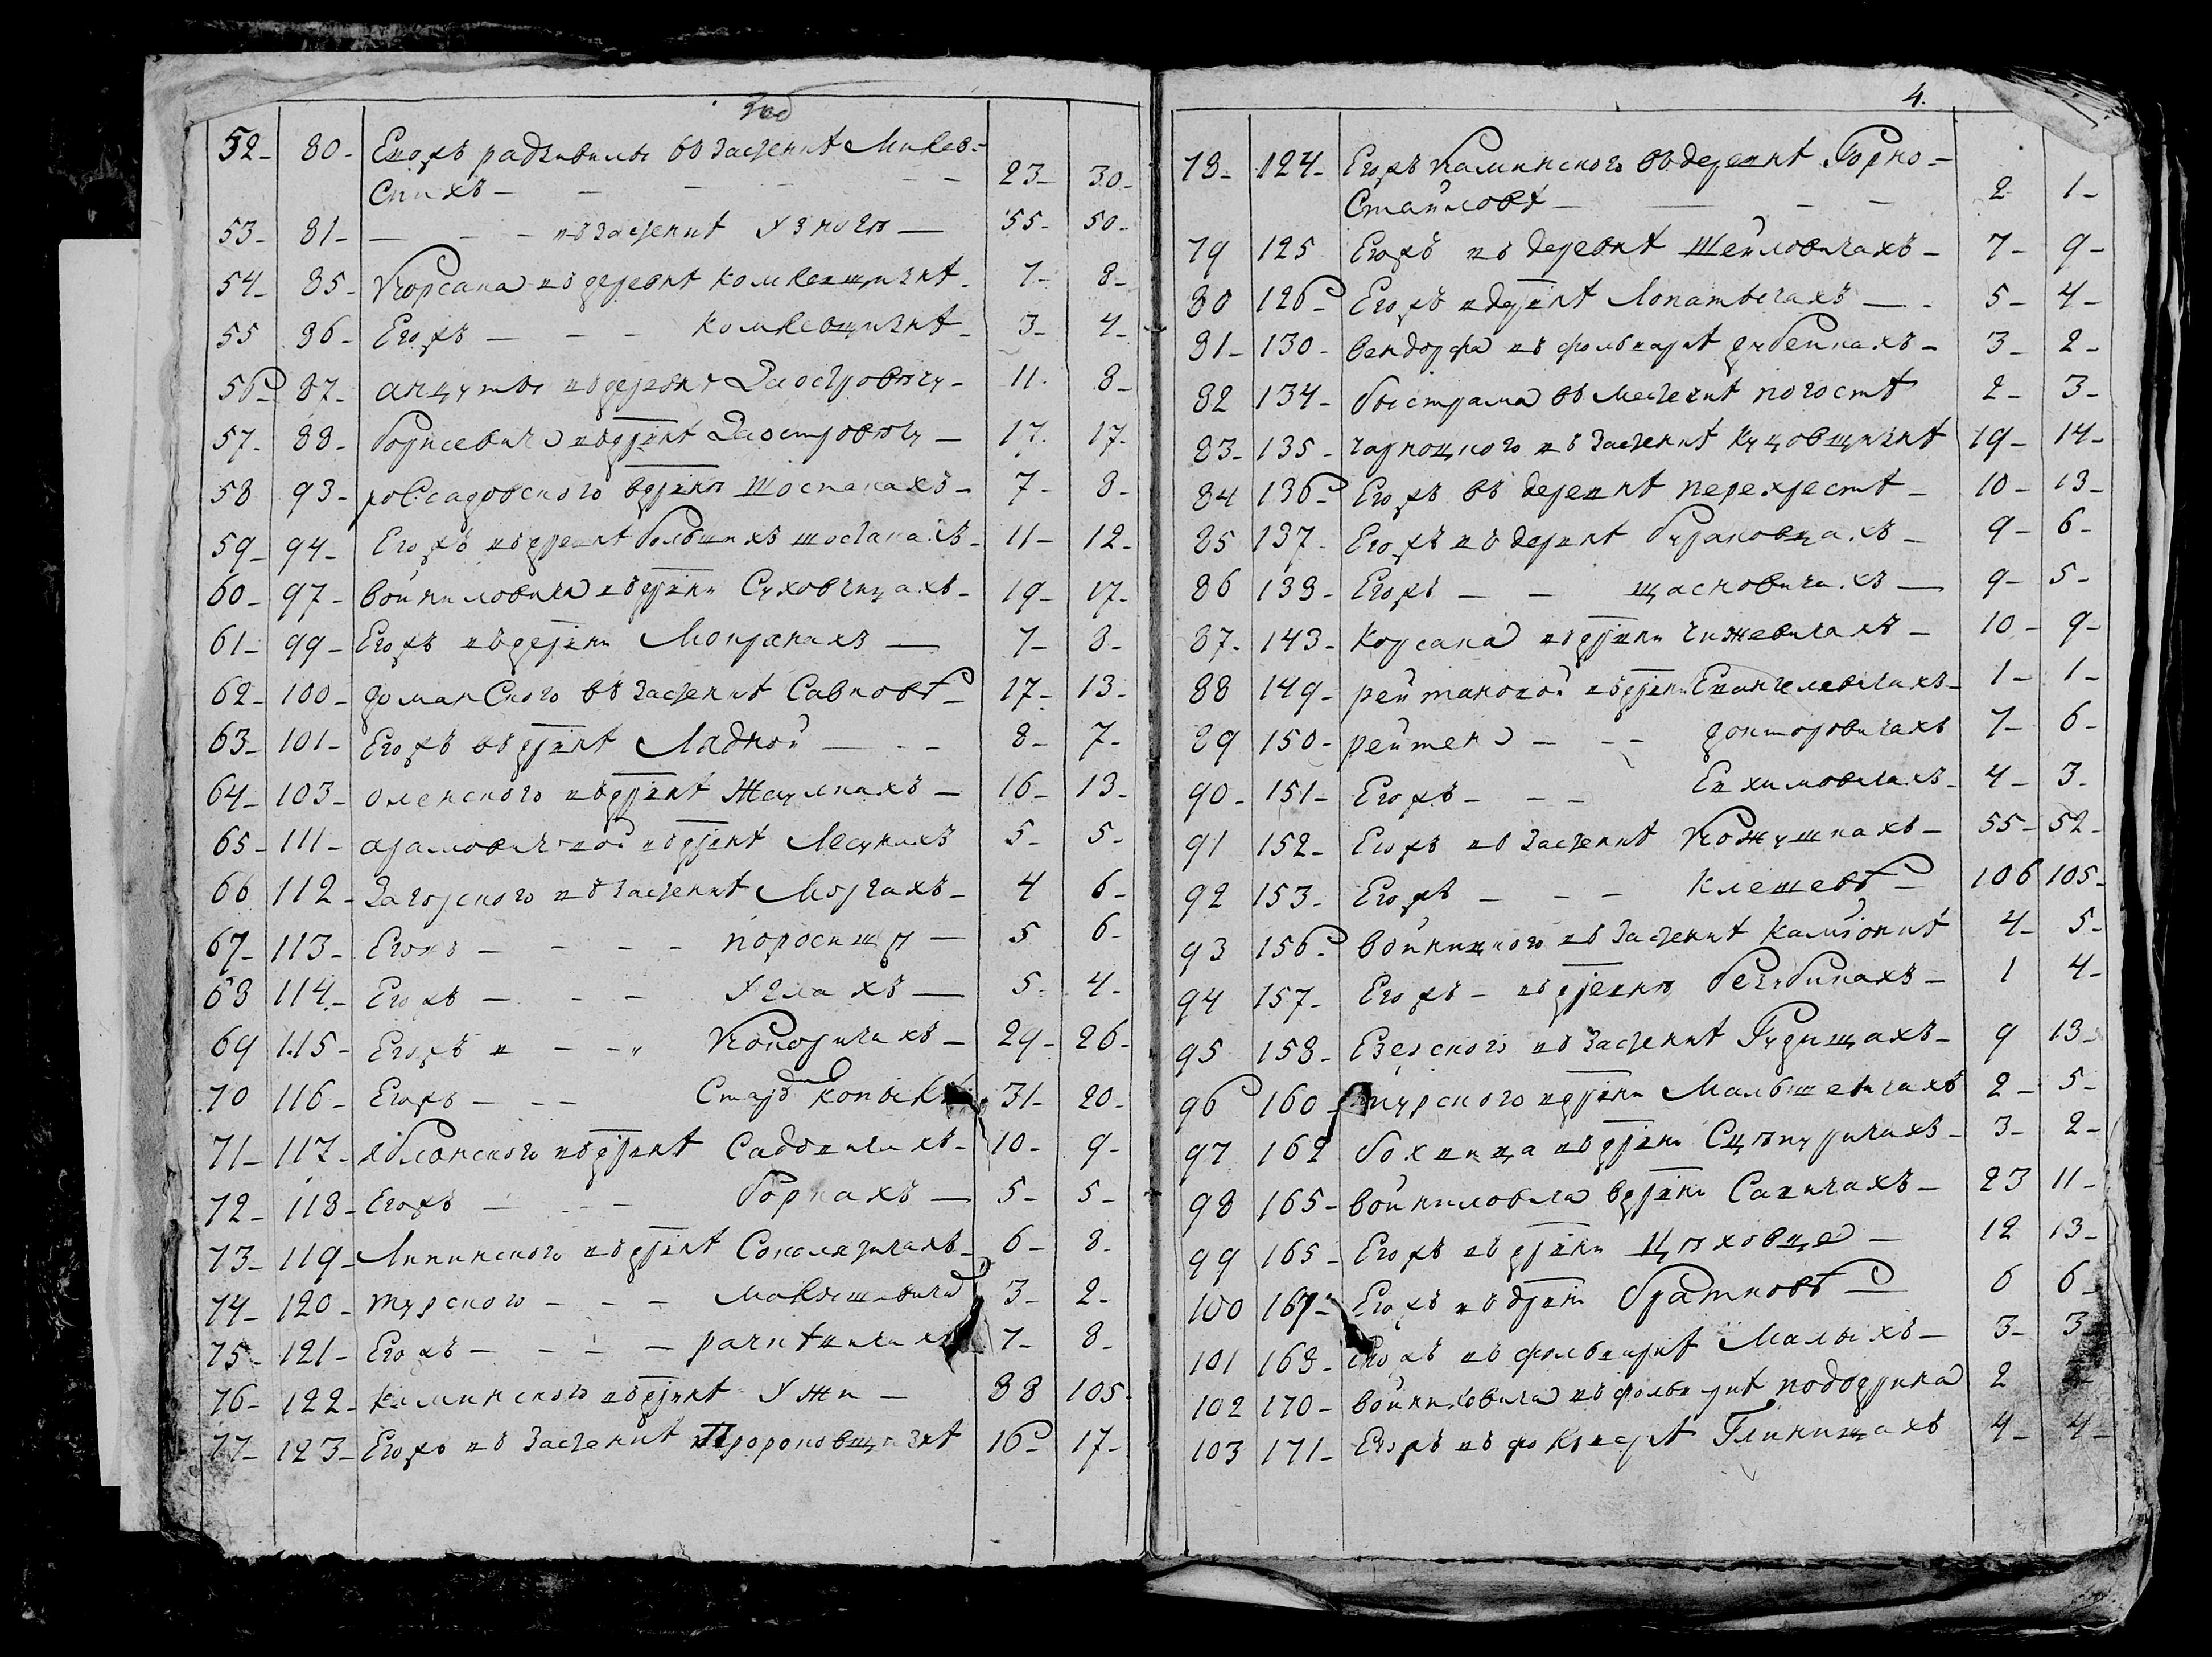 3 об
52 - 80 - Егожъ радзивилы въ застенкѣ Миков-
скихъ - - - - - 23 - 30 -
53 - 81 - - - - въ застенкѣ Узногъ - 55 - 50 -
54 - 85 - Корсака въ деревнѣ комковщизнѣ - 7 - 8 -
55 86 - Егожъ - - - комковщизнѣ - 3 - 4 -
56 - 87 - анцуты въ деревнѣ Заостровечу - 11 - 8 -
57 - 88 - борисевича въ д҃ревнѣ Заостровечу - 17 - 17 -
58 93 - росадовского в деревнѣ Шостакахъ - 7 - 8 -
59 - 94 - Егожъ въ деревнѣ большихъ шостакахъ - 11 - 12 -
60 - 97 - войниловича въ деревни Суховчицахъ - 19 - 17 -
61 - 99 - Егожъ въ деревни Мокранахъ - 7 - 8 -
62 - 100 - доманского въ застенкѣ Савковѣ - 17 - 13 -
63 - 101 - Егожъ въ деревнѣ Лядной - - - 8 - 7 -
64 - 103 - оленского въ деревнѣ Жаулкахъ - 16 - 13 -
65 - 111 - арамовичовой въ деревнѣ Лецкихъ 5 - 5 -
66 112 - Загорского въ застенкѣ Моргахъ - 4 6 -
67 - 113 - Егожъ - - - - поросищ - 5 6 -
68 114 - Егожъ - - - Углахъ - 5 - 4 -
69 115 - Егожъ в - - Кокоричахъ - 29 - 26 -
70 116 - Егожъ - - - Старо копыл 31 - 20 -
71 - 117 - яблонского въ деревнѣ Садовичахъ - 10 - 9 -
72 - 118 - Егожъ - - - - боркахъ - 5 - 5 -
73 - 119 - Липинского въ деревнѣ Соколягичахъ - 6 - 8 -
74 - 120 - турского - - - макошевича 3 - 2 -
75 - 121 - Егожъ - - - - рачкѣвичахъ 7 - 8 -
76 - 122 - каминского въ деревнѣ Ужи - 88 105 -
77 - 123 - Егожъ въ застенкѣ Пророковщизнѣ 16 - 17 -
4.
78 - 124 - Егожъ каминского въ деревнѣ Горно-
Стайловѣ - - - - 2 - 1 -
79 125 Егожъ въ деревнѣ Шейловичахъ - 7 - 9 -
80 126 - Егожъ в деревнѣ Лопатычахъ - - 5 - 4 -
81 - 130 - бендорфа въ фольваркѣ дубейкахъ - 3 - 2 -
82 134 - быстрама въ местечкѣ погостѣ 2 - 3 -
83 - 135 - чарноцкого въ застенкѣ куцовщизнѣ 19 - 14 -
84 136 - Егожъ въ деревнѣ перехрестѣ - 10 - 13 -
85 137 - Егожъ въ деревнѣ бурановцахъ - 9 - 6 -
86 138 - Егожъ - - щасновичахъ - 9 - 5 -
87 - 143 - корсака въ деревни чижевичахъ - 10 - 9 -
88 149 - рейтановой въ деревни Евангелевичахъ - 1 - 1 -
89 150 - рейтена - - - докторовичахъ 7 - 6 -
90 - 151 - Егожъ - - - Евхимовичахъ - 4 - 3 -
91 152 - Егожъ въ застенкѣ Кожушкахъ - 55 - 52 -
92 153 - Егожъ - - - клешевѣ - 106 105 -
93 156 - войницкого въ застенкѣ каліонкѣ 4 - 5 -
94 157 - Егожъ - въ деревнѣ бечубикахъ - 1 4 -
95 158 - Езерского въ застенкѣ Гудищахъ - 9 13 -
96 160 - турского в деревни Малышевичахъ 2 - 5 -
97 162 въ деревни 3 - 2 -
98 165 - войниловича в деревни Савичахъ - 23 11 -
99 165 - Егожъ въ деревни - 12 13 -
100 167 - Егожъ въ деревни братковѣ - 6 6 -
101 168 - Егожъ въ фольваркѣ Малыхъ - 3 - 3
102 170 - войниловича въ фольваркѣ подозрика 2
103 171 - Егожъ въ фольваркѣ Глинищахъ 4 - 4 -